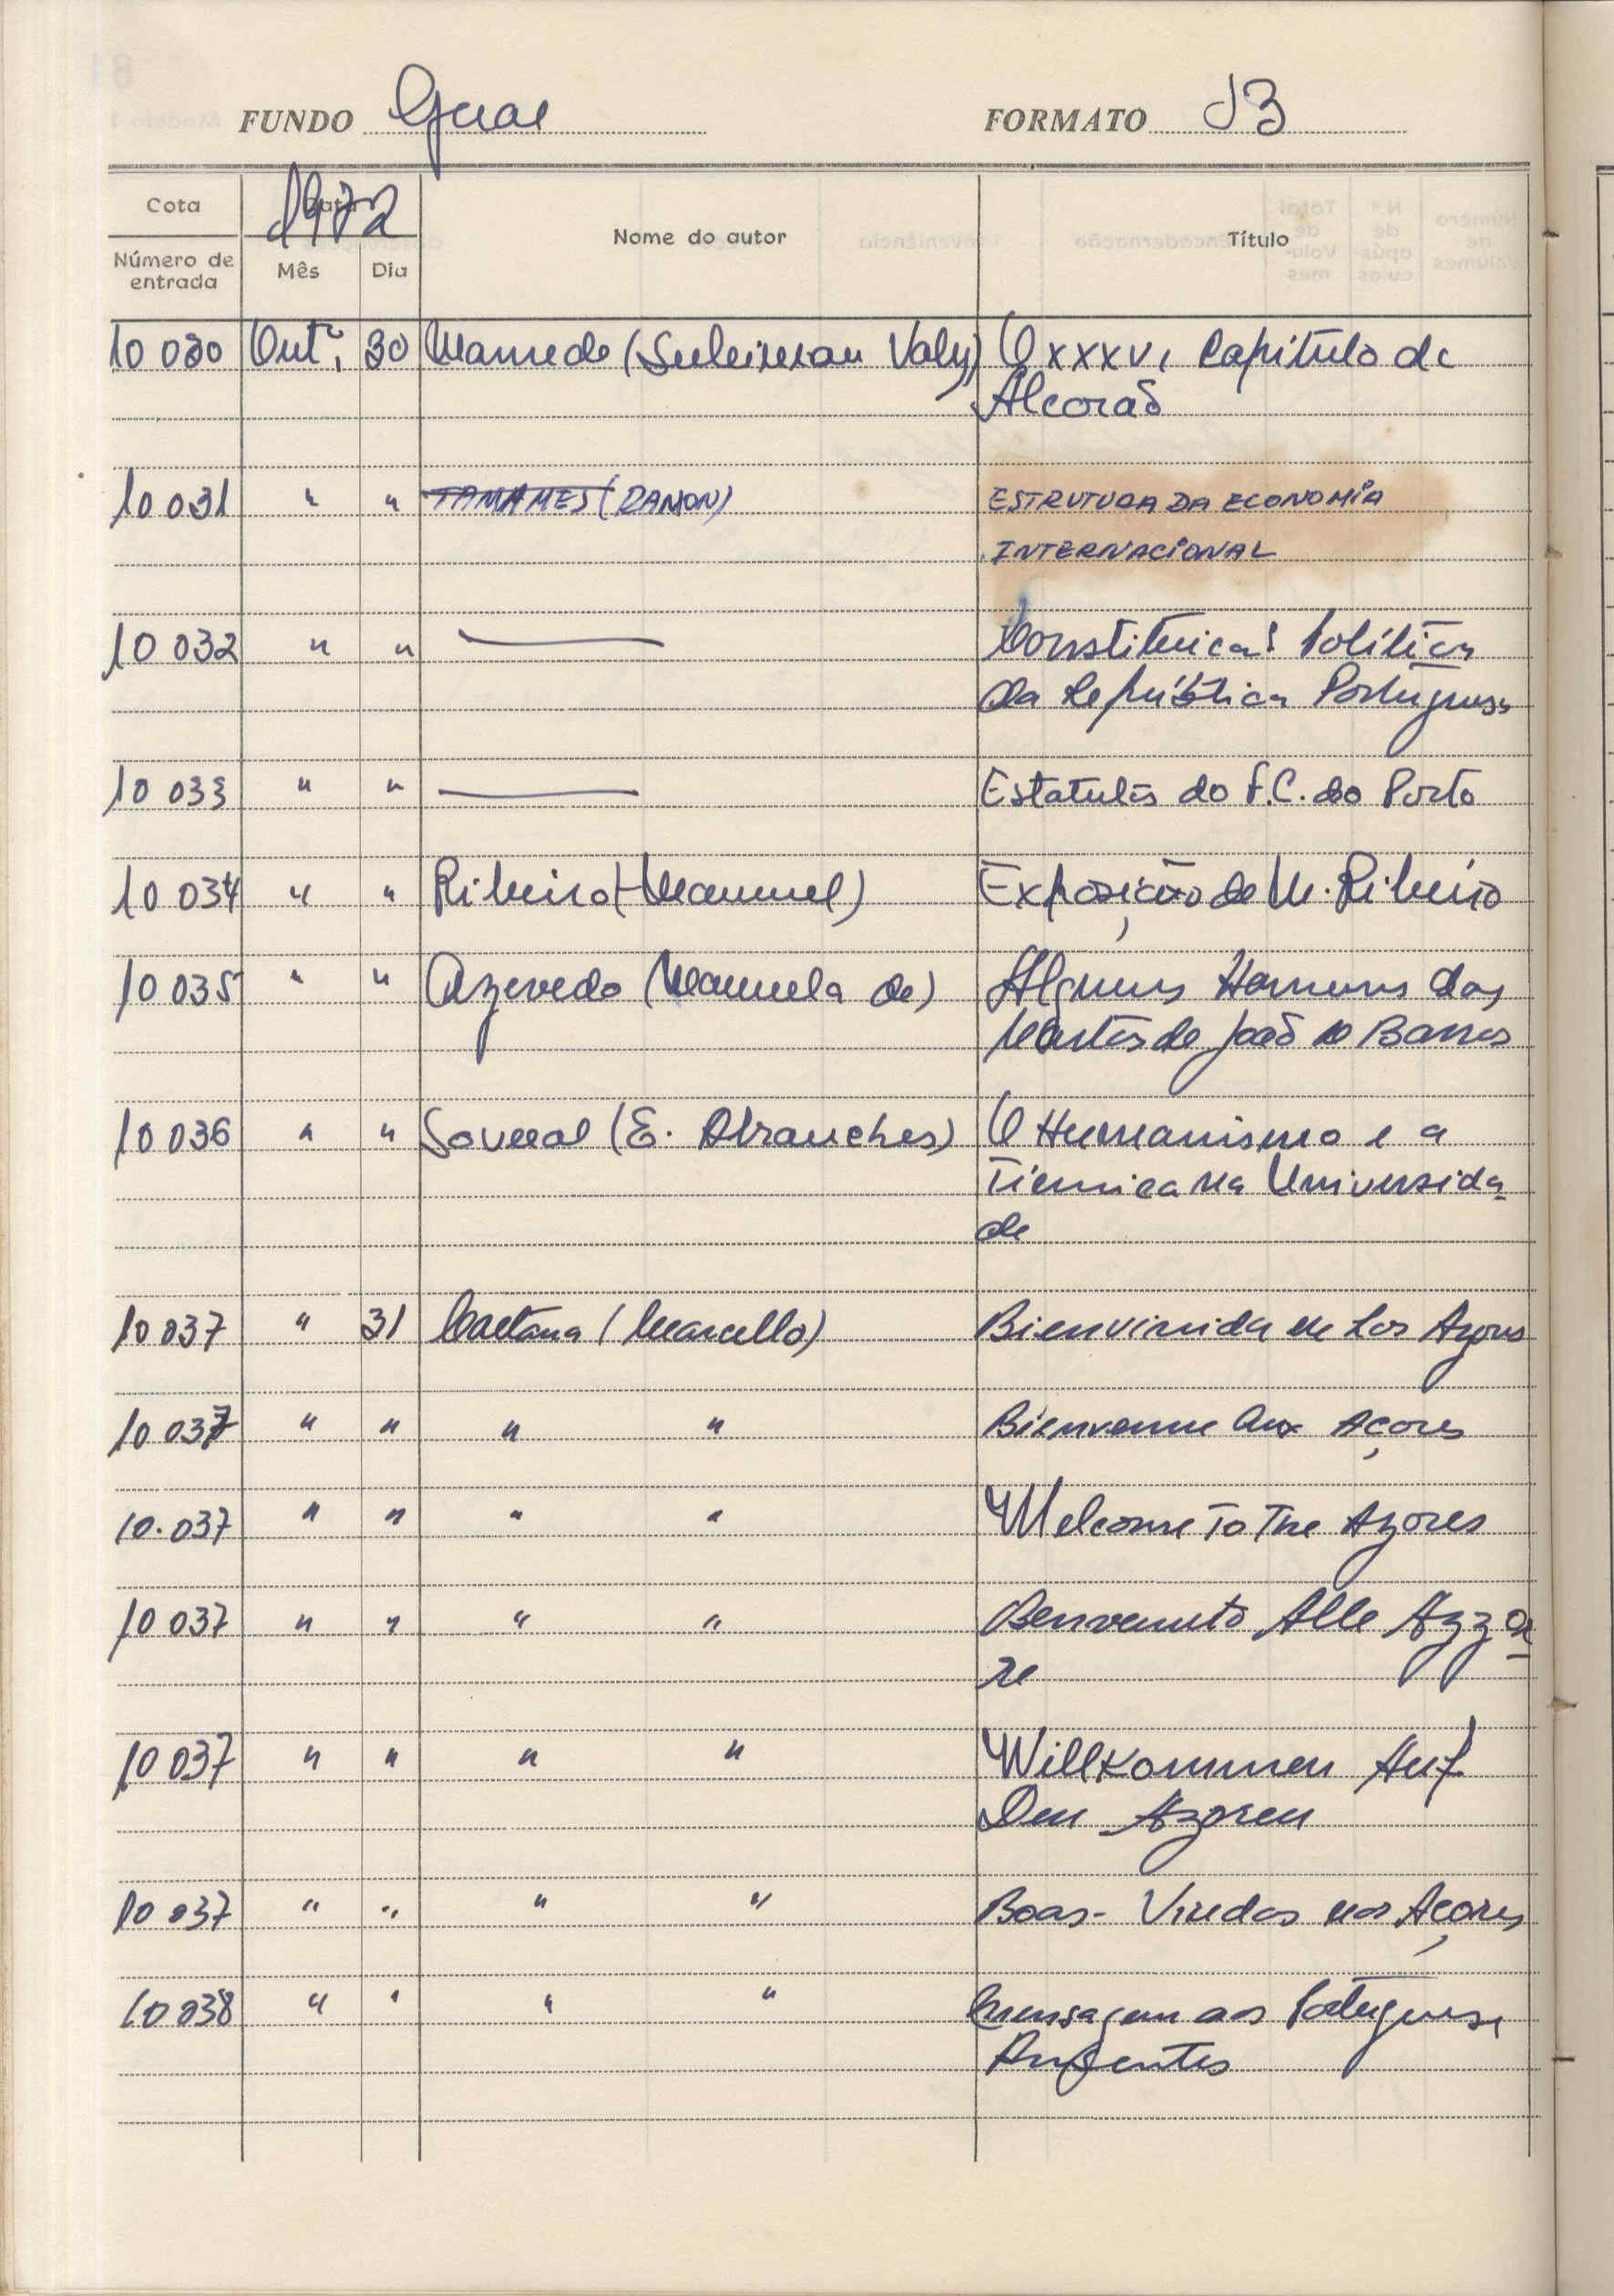 FUNDO Geral FORMATO B
Cota 1972 Data Nome do autor Título
Número de entrada Mês Dia
10 030 Outº. 30 Mamede (Suleiman Valy) O XXXVI Capítulo do
Alcorão
10 031 " " TAMAMES (RAMON) ESTRUTURA DA ECONOMIA
INTERNACIONAL
10 032 " " — Constituição Política
da República Portuguesa
10 033 " " — Estatutos do F.C. do Porto
10 034 " " Ribeiro (Manuel) Exposição de M. Ribeiro
10 035 " " Azevedo (Manuela de) Alguns Homens das
Cartas de João de Barros
10 036 " " Soveral (E. Abranches) O Humanismo e a
Técnica na Universida
de
10 037 " 31 Caetano (Marcello) Bienvinida en Los Azores
10 037 " " " " Bienvenue Aux Açores
10.037 " " " " Welcome To The Azores
10 037 " " " " Benvenuto Alle Azzo
re
10 037 " " " " Willkommen Auf
Den Azoren
10 037 " " " " Boas-Vindas nos Açores
10 038 " " " " Mensagem aos Portugueses